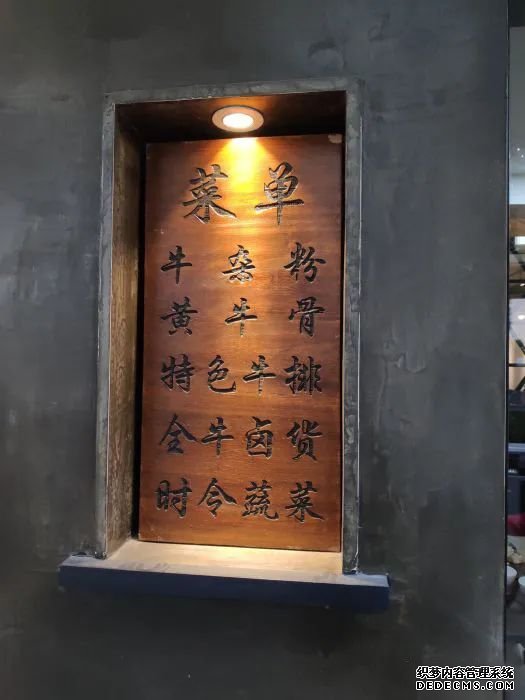 菜单
牛杂粉
黄牛骨
特色牛排
全牛卤货
时令蔬菜
织梦内容管理系统
DEDECMS.COM